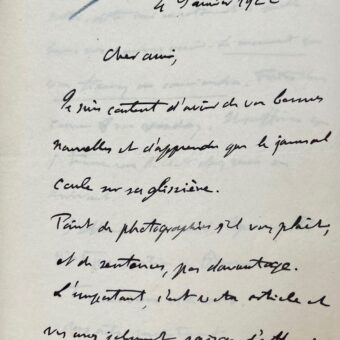 4 Janvier 192
Cher ami,
Je suis content d'avoir de vos bonnes
nouvelles et d'apprendre que le journal
coule sur sa glissière.
Point de photographies s'il vous plaît,
et de sentences, pas davantage.
L'important, c'est votre article et
vos